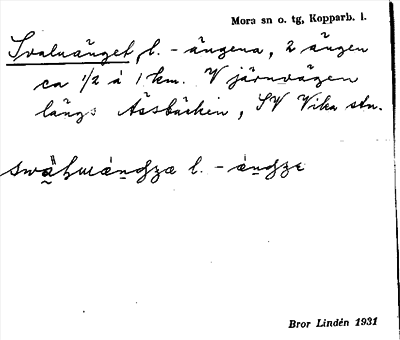 Mora sn o. tg, Kopparb. l.
Svaluänget, l. - ängena, 2 ängen
ca 1/2 à 1 km. V järnvägen
längs Åssbäcken, SV Vika stn.
l. -
Bror Lindén 1931